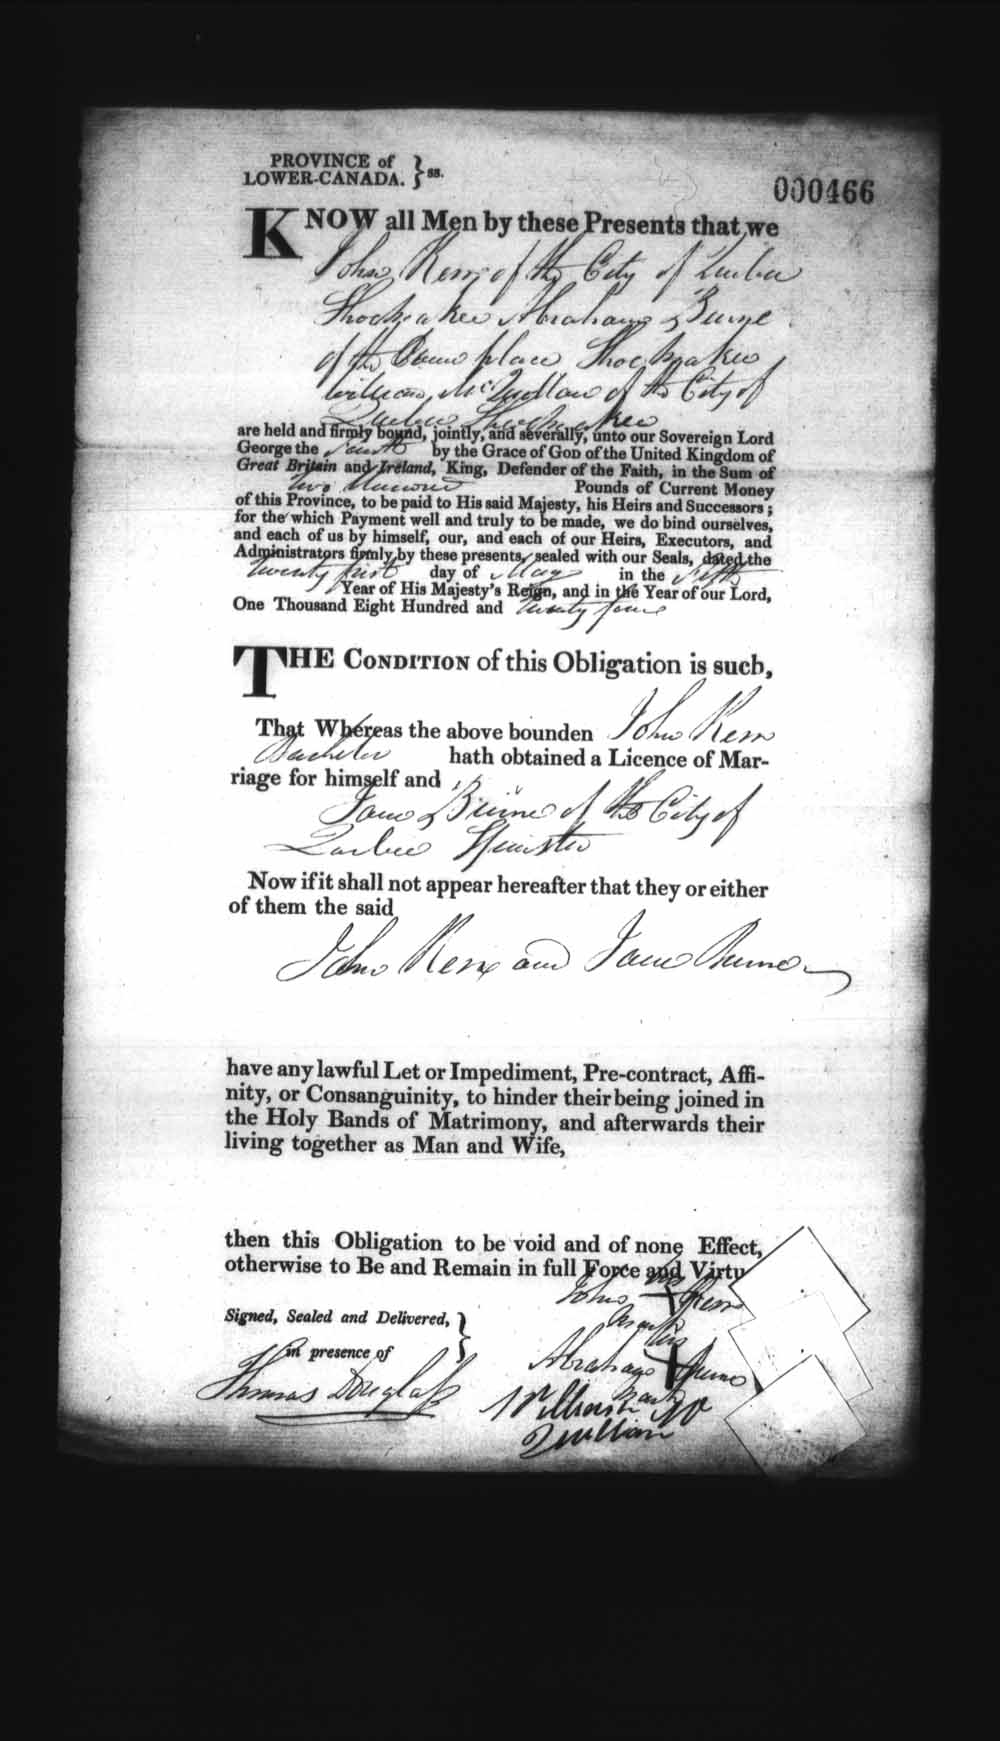 PROVINCE of
LOWER-CANADA. } ss.
000466
KNOW all Men by these Presents that we
John Kerr of the City of Quebec
Shoemaker Abraham Burne
of the Same place Shoemaker
William McQuillan of the City of
Quebec Shoemaker
are held and firmly bound, jointly, and severally, unto our Sovereign Lord
George the fourth by the Grace of GOD of the United Kingdom of
Great Britain and Ireland, King, Defender of the Faith, in the Sum of
two Hundred Pounds of Current Money
of this Province, to be paid to His said Majesty, his Heirs and Successors;
for the which Payment well and truly to be made, we do bind ourselves,
and each of us by himself, our, and each of our Heirs, Executors, and
Administrators firmly by these presents, sealed with our Seals, dated the
twenty first day of May in the fifth
Year of His Majesty's Reign, and in the Year of our Lord,
One Thousand Eight Hundred and twenty four
THE CONDITION of this Obligation is such,
That Whereas the above bounden John Kerr
Bachelor hath obtained a Licence of Mar-
riage for himself and
Jane Burne of the City of
Quebec Spinster
Now if it shall not appear hereafter that they or either
of them the said
John Kerr and Jane Burne
have any lawful Let or Impediment, Pre-contract, Affi-
nity, or Consanguinity, to hinder their being joined in
the Holy Bands of Matrimony, and afterwards their
living together as Man and Wife,
then this Obligation to be void and of none Effect,
otherwise to Be and Remain in full Force and Virtu
his
John + Kerr
mark
Signed, Sealed and Delivered, }
in presence of
his
Abraham + Burne
mark
Thomas Douglass
William Mc
Quillian